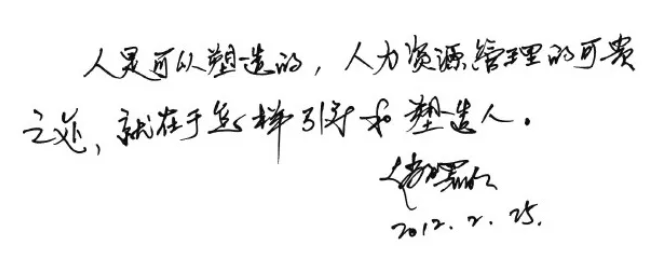 人是可以塑造的，人力资源管理的可贵
之处，就在于怎样引导和塑造人。
2012.2.25.